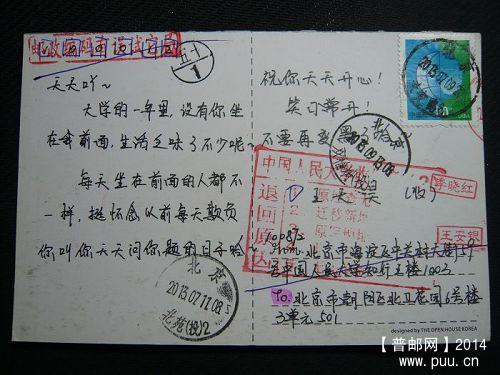 邮政编码有误试投局
五十
1
天天吖~
大学的一年里,没有你坐
在我前面,生活乏味了不少呢~
每天坐在前面的人都不
一样,挺怀念以前每天欺负
你叫你天天问你题的日子哈
祝你天天开心!
笑口常开!
不要再变黑
(收)
北京
2013.07.09
北京
2013.07.11.08
北苑(投)2
中国人民大学
退回原处
1
2 迁移新址
李晓红
王安银
100872
From: 北京市海淀区中关村大街59
号中国人民大学知行2楼1003
To. 北京市朝阳区北卫花园6号楼
3单元501
designed by THE OPEN HOUSE KOREA
【普邮网】2014
www.puu.cn